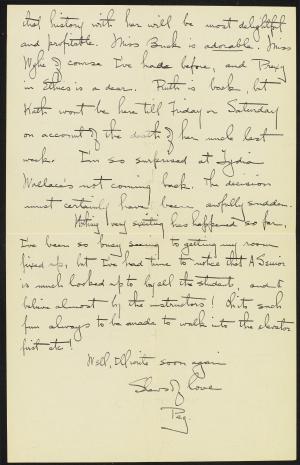 that history with her will be most delightful
and profitable. Miss Buck is adorable. Miss
Wylie of course I've had before, and Prexy
in Ethics is a dear. Ruth is back, but
Kath won't be here till Friday or Saturday
on account of the death of her uncle last
week. I'm so surprised at Lydia
Wallace's not coming back. The decision
must certainly have been awfully sudden.
Nothing very exciting has happened so far.
I've been so busy seeing to getting my room
fixed up, but I've had time to notice that A Senior
is much looked up to by all the students, and I
believe almost by the instructors! Oh it's such
fun always to be made to walk into the elevator
first etc!
Well, I'll write soon again
Stacks of love
Peg.